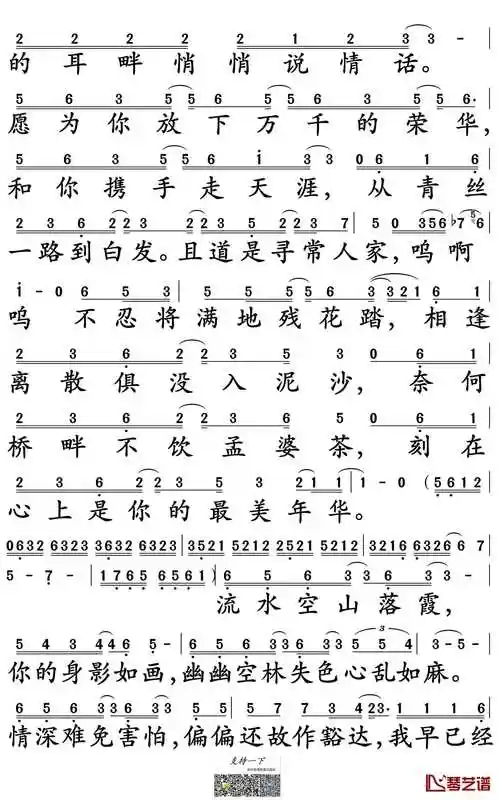 2 2 2 2 2 1 2 3 3 -
的耳畔悄悄说情话。
5 6 3 5 5 6 5 6 5 3 5 5 6 5·
愿为你放下万千的荣华,
5 6 5 5 5 6 i 3 3 0 6 1 6
和你携手走天涯,从青丝
2 3 6 2 2 3 2 2 3 5 2 2 3 7 5 0 356 b7 6
一路到白发。且道是寻常人家,呜啊
i - 0 6 5 3 5 5 5 5 6 3 3 3 2 1 6 1
呜 不忍将满地残花踏,相逢
2 3 6 2 2 3 5 3 0 6 1
离散俱没入泥沙,奈何
2 3 6 2 2 3 6 5 0 6 1
桥畔不饮孟婆茶,刻在
2 3 6 2 2 3 5 3 2 1 1 1 - 0 (5 6 1 2
心上是你的最美年华。
0632 6323 3632 6323 3521 5212 2521 5212 3216 6322 6 7
5 - 7 - 1765 6561) 6 5 6 3 3 6 3 -
流水空山落霞,
5 4 3 4 4 6 5 - 5 6 5 6 3 3 3 5 5 4 3 - 5 -
你的身影如画,幽幽空林失色心乱如麻。
6 5 6 3 3 6 3 6 5 6 3 5 3 4 23· 1 1 1 6
情深难免害怕,偏偏还故作豁达,我早已经
支持一下
琴艺谱